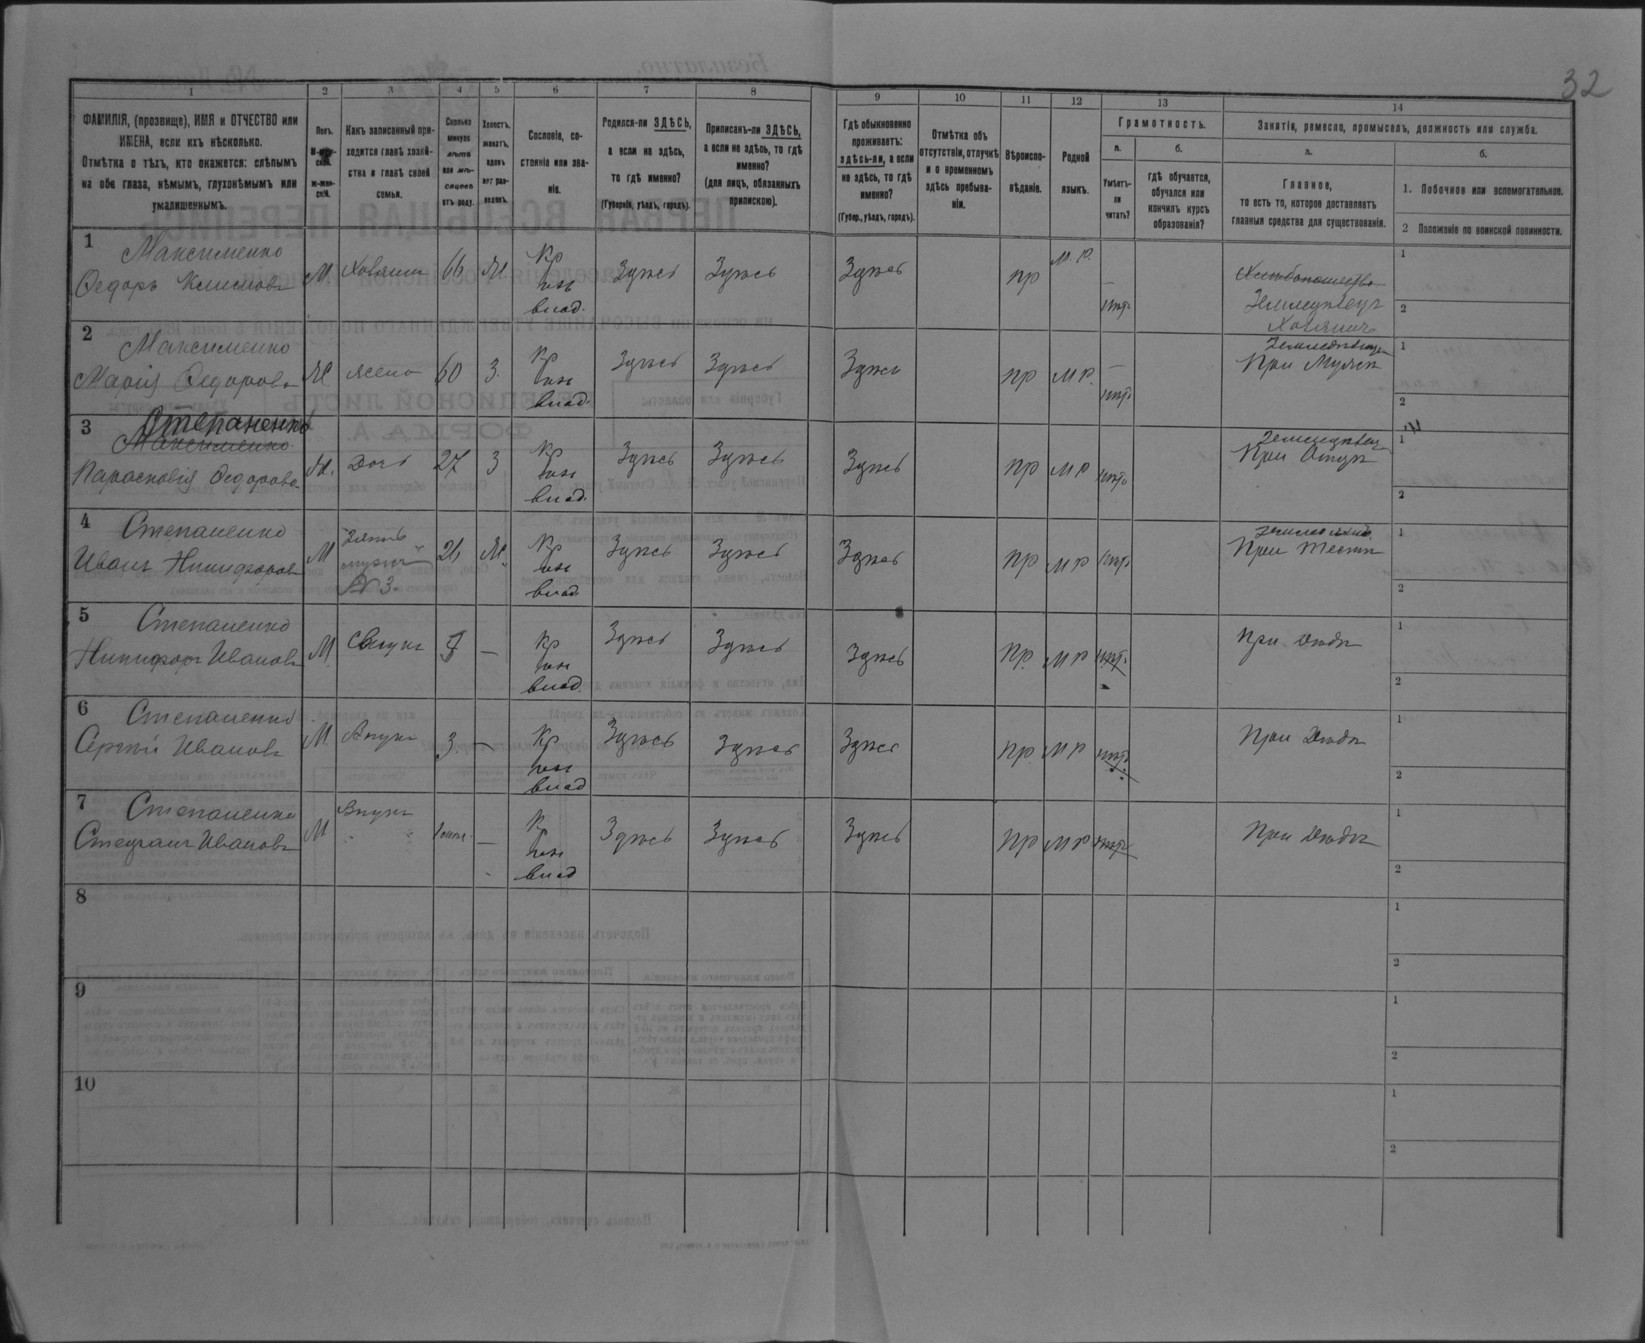 32
1 2 3 4 5 6 7 8 9 10 11 12 13 14
ФАМИЛІЯ, (прозвище), ИМЯ и ОТЧЕСТВО или
ИМЕНА, если ихъ нѣсколько.
Отмѣтка о тѣхъ, кто окажется: слѣпымъ
на оба глаза, нѣмымъ, глухонѣмымъ или
умалишеннымъ.
Полъ.
Какъ записанный при-
ходится главѣ хозяй-
ства и главѣ своей
семьи.
Сколько
минуло
лѣтъ
или мѣ-
сяцевъ
отъ роду.
Холостъ,
женатъ,
вдовъ
Сословіе, со-
стояніе или зва-
ніе.
Родился-ли ЗДѢСЬ,
а если не здѣсь,
то гдѣ именно?
(Губернія, уѣздъ, городъ).
Приписанъ-ли ЗДѢСЬ,
а если не здѣсь, то гдѣ
именно?
(для лицъ, обязанныхъ
припискою).
Гдѣ обыкновенно
проживаетъ:
здѣсь-ли, а если
не здѣсь, то гдѣ
именно?
(Губер., уѣздъ, городъ).
Отмѣтка объ
отсутствіи, отлучкѣ
и о временномъ
здѣсь пребыва-
ніи.
Вѣроиспо-
вѣданіе.
Родной
языкъ.
Грамотность.
а.
Умѣетъ-
ли
читать?
б.
гдѣ обучается,
обучался или
кончилъ курсъ
образованія?
Занятіе, ремесло, промыселъ, должность или служба.
а.
Главное,
то есть то, которое доставляетъ
главныя средства для существованія.
б.
1. Побочное или вспомогательное.
2 Положеніе по воинской повинности.
1 Максименко
Ѳедоръ Климовъ М Хозяинъ 66 Ж Кр Здѣсь Здѣсь Здѣсь пр М.Р. 1
влад.
Хлѣбопашество
Земледѣлецъ 2
Хозяинъ
2 Максименко
Марія Ѳедорова Ж жена 60 З. Кр Здѣсь Здѣсь Здѣсь пр МР. 1
влад. При Мужѣ 2
3 Степаненко
Максименко
Парасковія Ѳедорова Ж. Дочь 27 З Кр Здѣсь Здѣсь Здѣсь пр МР 1
влад. При Отцѣ 2
4 Степаненко
Иванъ Никифоровъ М Зять Кр Здѣсь Здѣсь Здѣсь пр МР 1
№ 3. влад При тестѣ 2
5 Степаненко
Никифоръ Ивановъ М Внукъ — Кр Здѣсь Здѣсь Здѣсь пр. МР При Дѣдѣ 1
влад. 2
6 Степаненко
Сергій Ивановъ М Внукъ 3 — Кр Здѣсь Здѣсь Здѣсь пр. МР При Дѣдѣ 1
влад 2
7 Степаненко
Степанъ Ивановъ М Внукъ — Кр Здѣсь Здѣсь Здѣсь пр МР При Дѣдѣ 1
влад 2
8 1
2
9 1
2
10 1
2